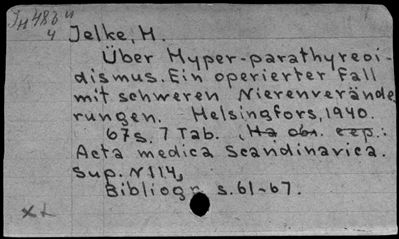 Jelke, H.
Über Hyper-parathyreoi-
dismus. Ein operierter Fall
mit schweren Nierenverände
rungen. Helsingfors, 1940.
67s. 7 Tab. (На обл. сер.:
Acta medica Scandinavica.
Sup. N 114,
Bibliogr. s. 61-67.